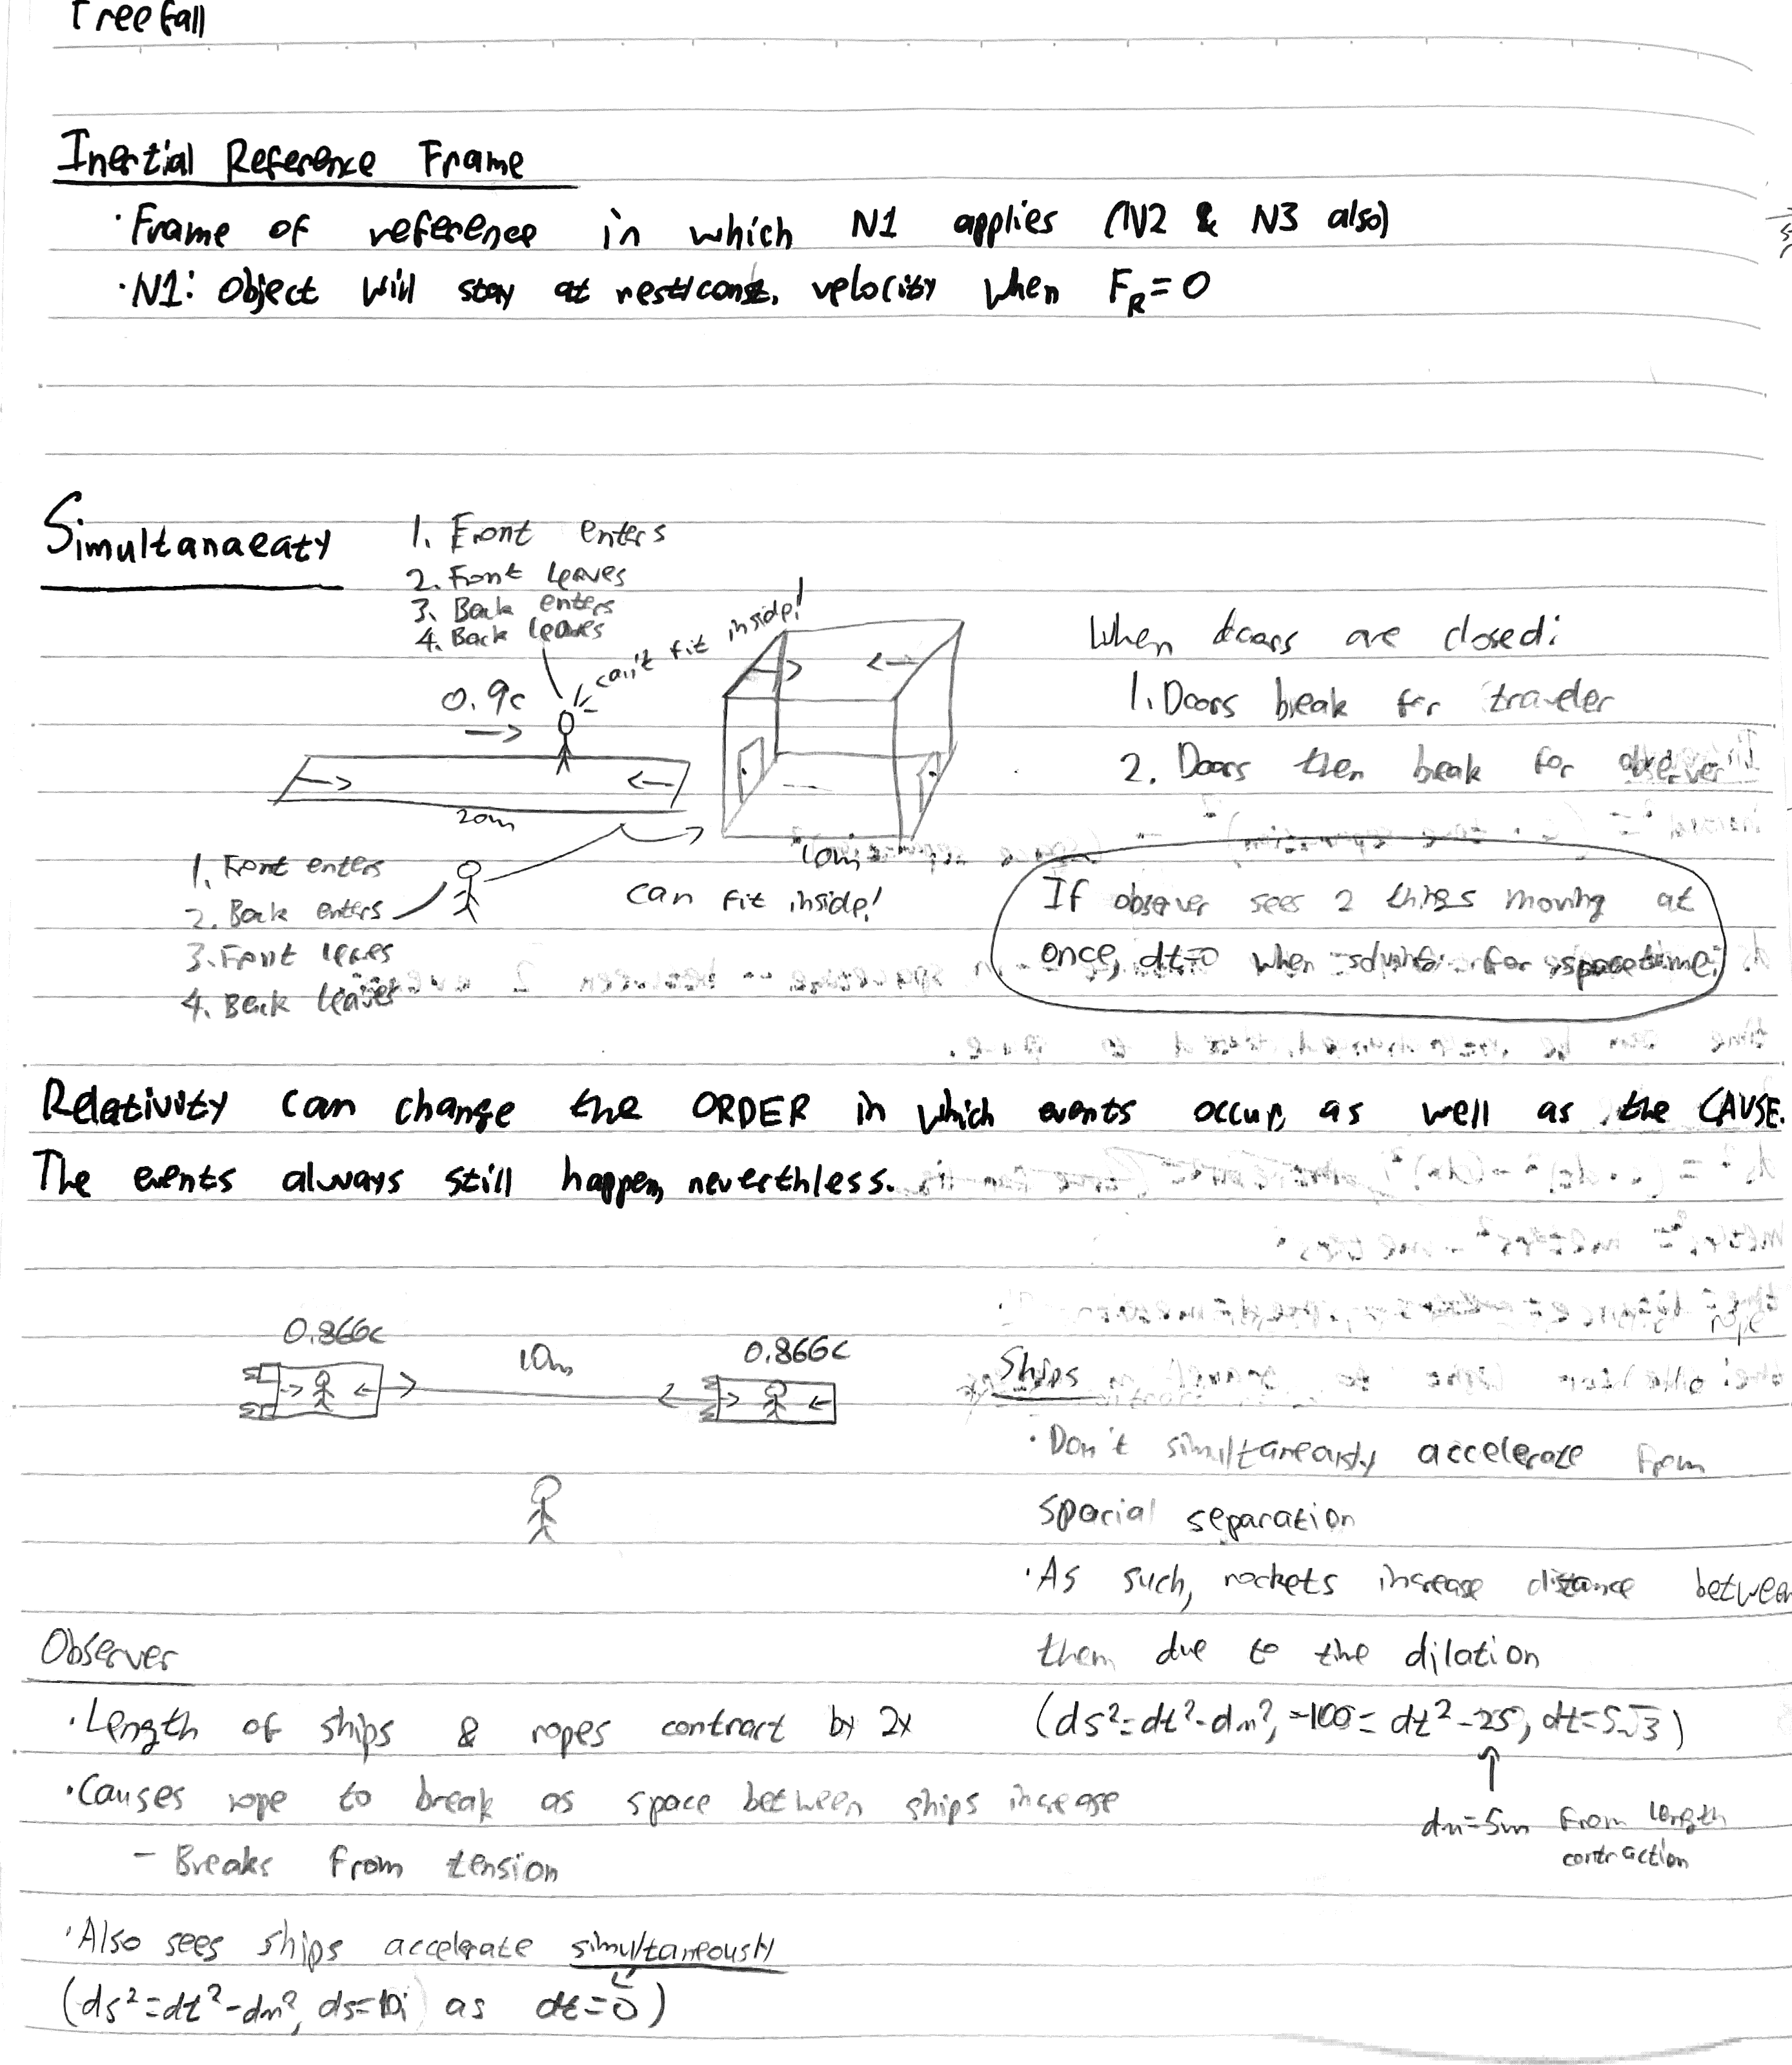 Freefall
Inertial Reference Frame
·Frame of reference in which N1 applies (N2 & N3 also)
·N1: Object will stay at rest/const. velocity when F_R=0
Simultanaeaty
1. Front enters
2. Front leaves
3. Back enters
4. Back leaves
can't fit inside!
0.9c
20m
10m
can fit inside!
1. Front enters
2. Back enters
3. Front leaves
4. Back leaves
When doors are closed:
1. Doors break for traveler
2. Doors then break for observer
If observer sees 2 things moving at
once, dt=0 when solving for spacetime.
Relativity can change the ORDER in which events occur, as well as the CAUSE.
The events always still happen, neverthless.
0.866c
10m
0.866c
Ships
·Don't simultaneously accelerate from
spacial separation
·As such, rockets increase distance between
them due to time dilation
(ds²=dt²-dm², -100= dt²-25, dt=5√3)
dm=5m from length
contraction
Observer
·Length of ships & ropes contract by 2x
·Causes rope to break as space between ships increase
- Breaks from tension
·Also sees ships accelerate simultaneously
(ds²=dt²-dm², ds=10i as dt=0)